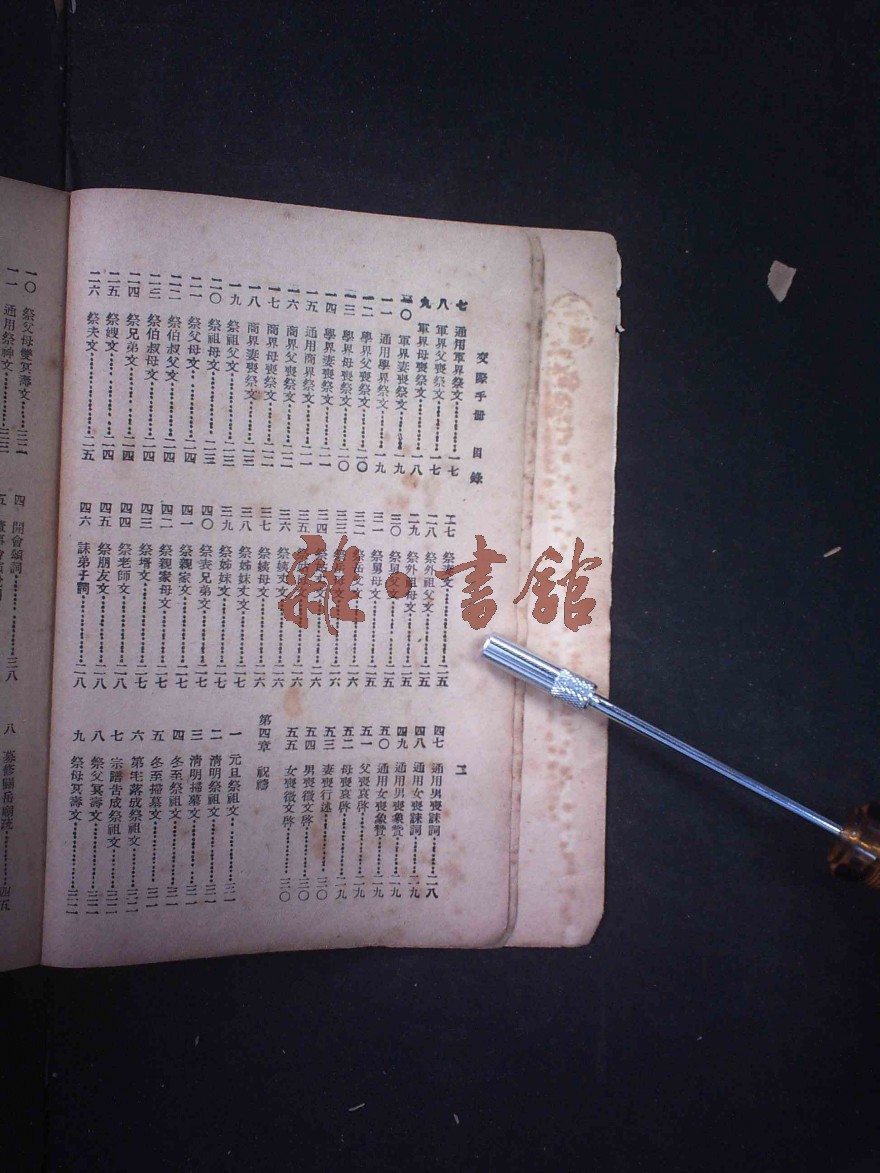 交際手冊 目錄 二
七 通用軍界祭文 一七
八 軍界父喪祭文 一七
九 軍界母喪祭文 一八
一〇 軍界妻喪祭文 一九
一一 通用學界祭文 一九
一二 學界父喪祭文 二〇
一三 學界母喪祭文 二〇
一四 學界妻喪祭文 二一
一五 通用商界祭文 二一
一六 商界父喪祭文 二二
一七 商界母喪祭文 二二
一八 商界妻喪祭文 二三
一九 祭祖父文 二三
二〇 祭祖母文 二三
二一 祭父母文 二四
二二 祭伯叔父文 二四
二三 祭伯叔母文 二四
二四 祭兄弟文 二四
二五 祭嫂文 二四
二六 祭夫文 二五
二七 祭妻文 二五
二八 祭外祖父文 二五
二九 祭外祖母文 二五
三〇 祭舅父文 二五
三一 祭舅母文 二五
三二 祭岳父文 二六
三三 祭岳母文 二六
三四 祭姑丈文 二六
三五 祭姑母文 二六
三六 祭姨丈文 二六
三七 祭姨母文 二六
三八 祭姊妹丈文 二七
三九 祭姊妹文 二七
四〇 祭表兄弟文 二七
四一 祭親家文 二七
四二 祭親家母文 二七
四三 祭壻文 二七
四四 祭老師文 二八
四五 祭朋友文 二八
四六 誄弟子詞 二八
四七 通用男喪誄詞 二八
四八 通用女喪誄詞 二九
四九 通用男喪象贊 二九
五〇 通用女喪象贊 二九
五一 父喪哀啓 二九
五二 母喪哀啓 二九
五三 妻喪行述 三〇
五四 男喪徵文啓 三〇
五五 女喪徵文啓 三〇
第四章 祝禱
一 元旦祭祖文 三一
二 清明祭祖文 三一
三 清明掃墓文 三一
四 冬至祭祖文 三一
五 冬至掃墓文 三一
六 第宅落成祭祖文 三二
七 宗譜告成祭祖文 三二
八 祭父冥壽文 三二
九 祭母冥壽文 三二
一〇 祭父母雙冥壽文 三二
一一 通用祭神文 三三
四 開會頌詞 三八
五
八 募修關岳廟疏 四五
雜·書館